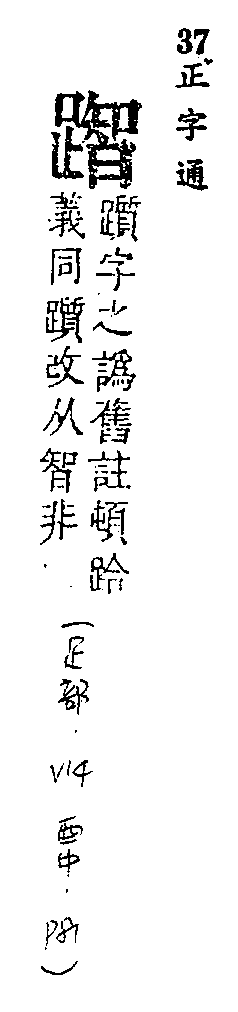 37 正字通
躓字之譌舊註頓跲
義同躓改从智非
(足部.V14 酉中.P81)